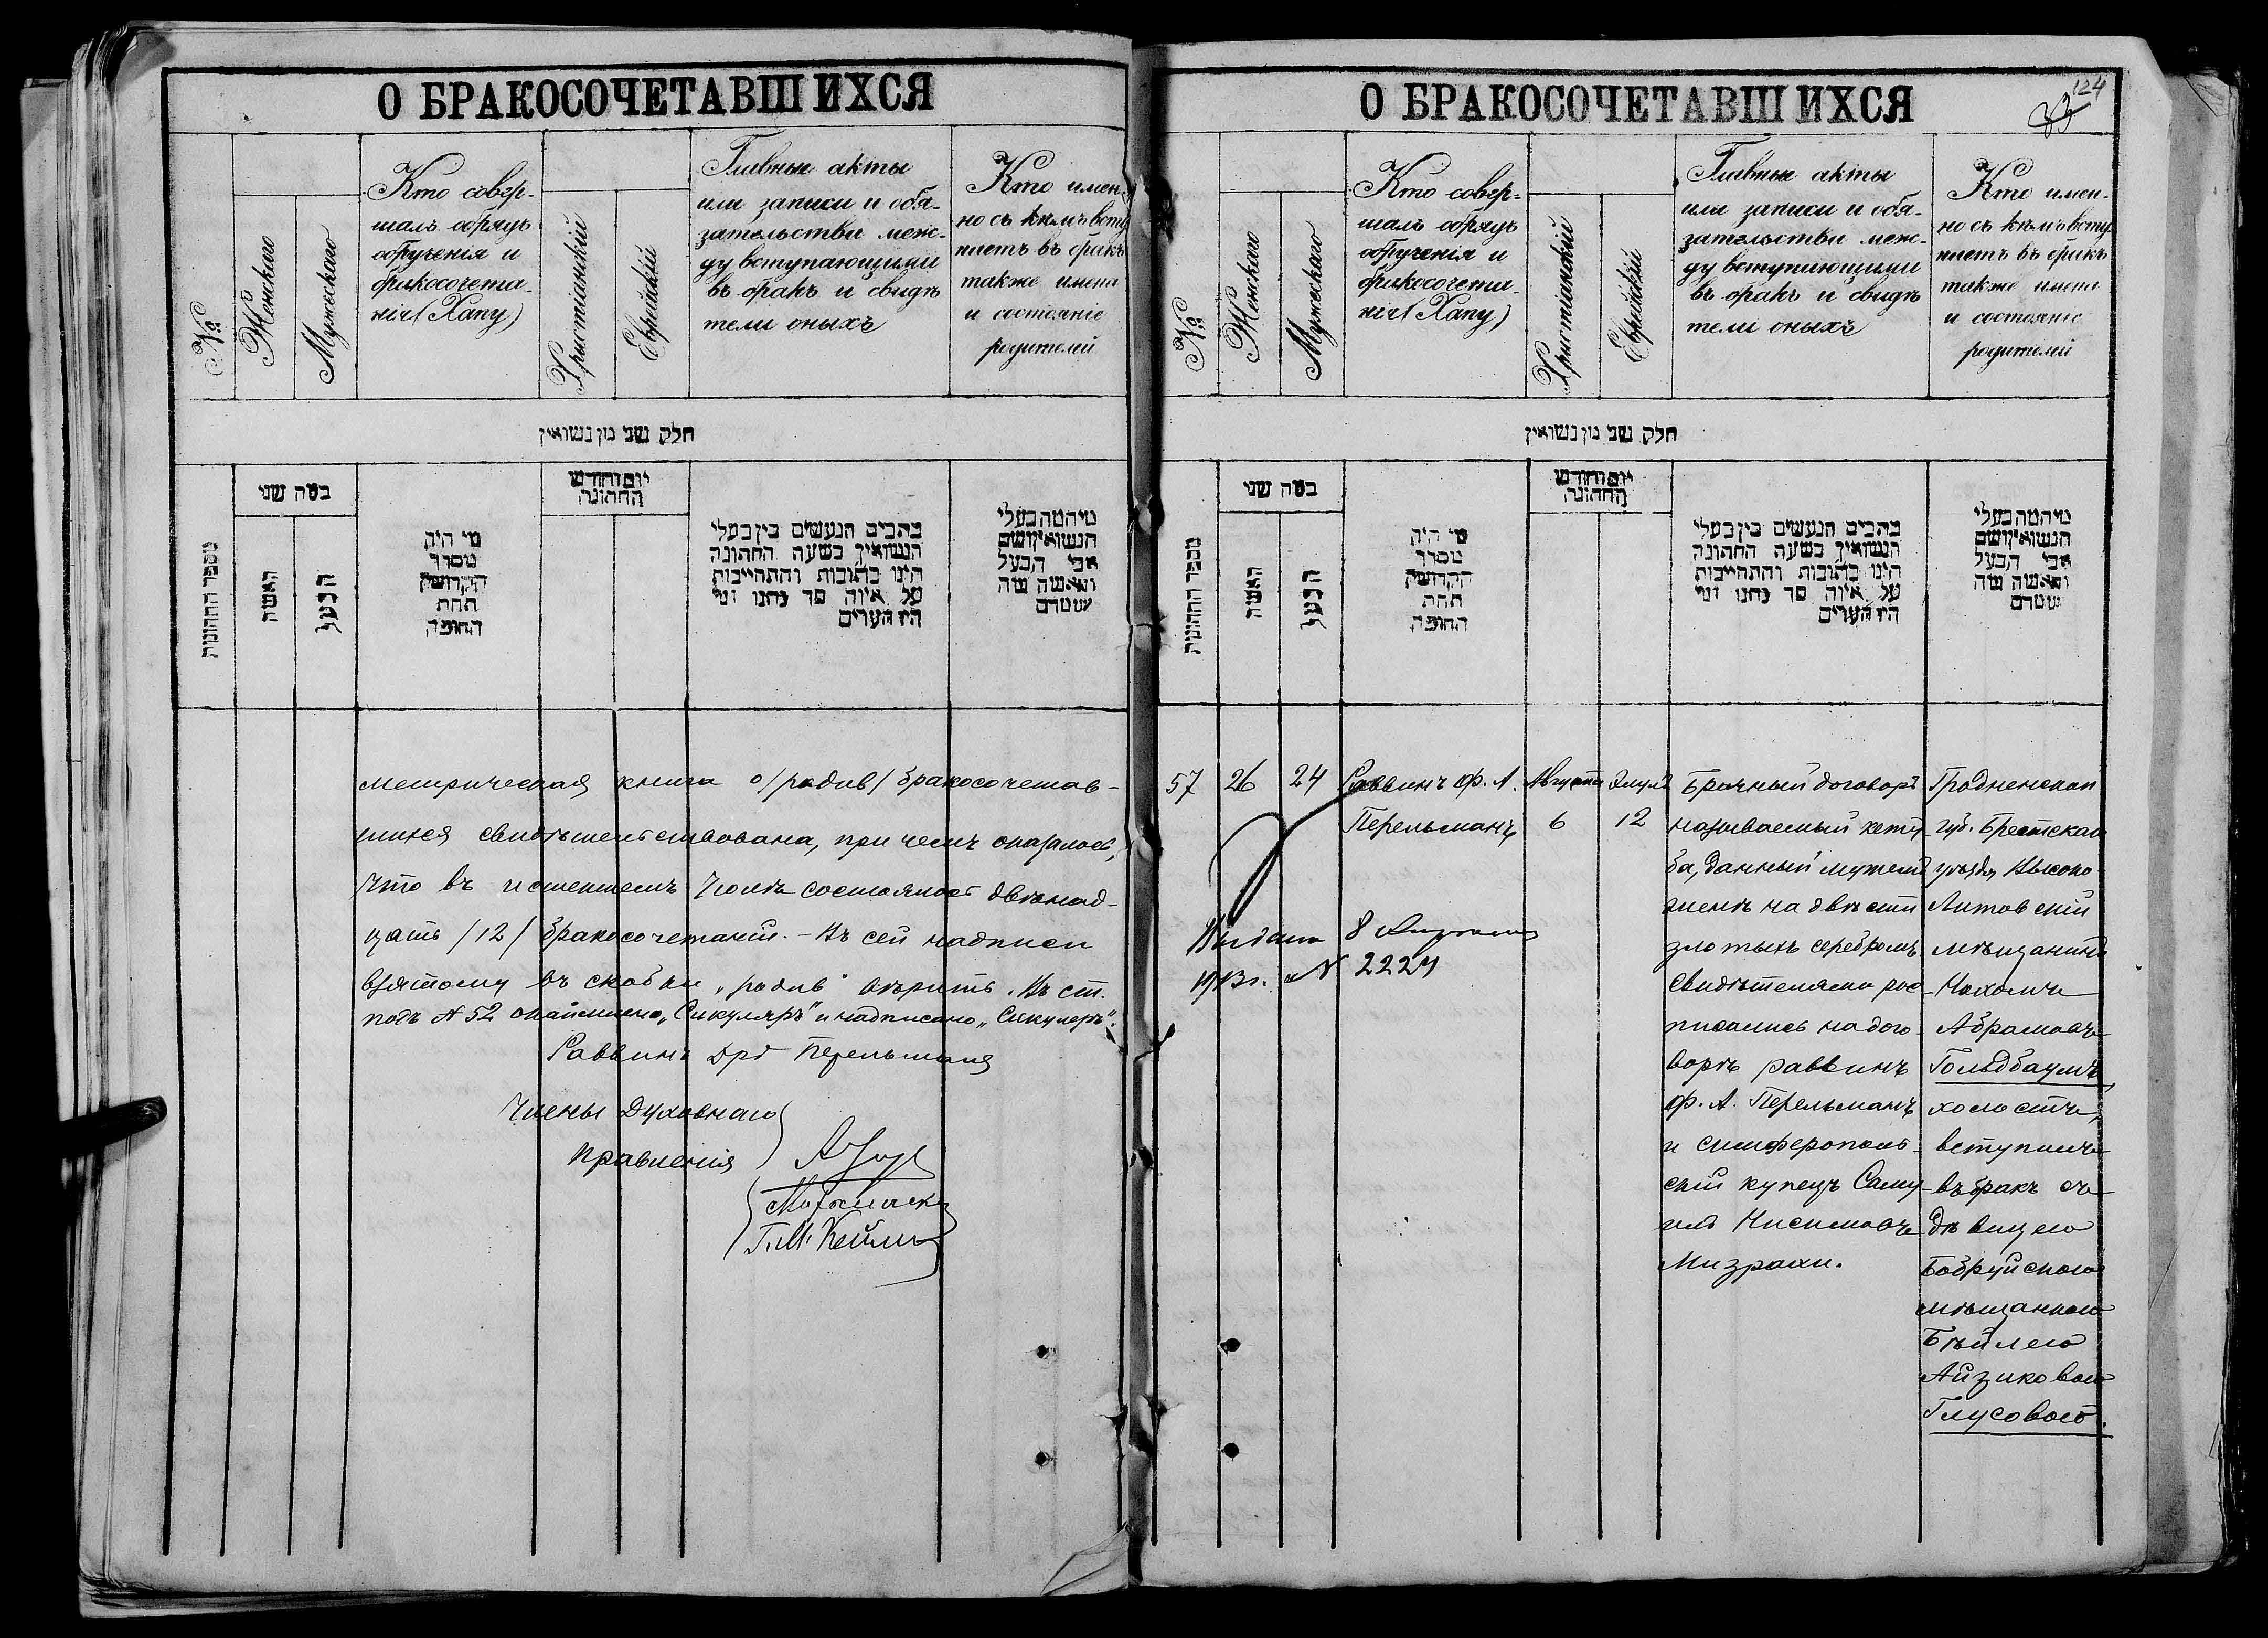 О БРАКОСОЧЕТАВШИХСЯ
№
Женскаго
Мужескаго
Кто совер-
шалъ обрядъ
обрученія и
бракосочета-
нія (Хапу)
Христіанскій
Еврейскій
Главные акты
или записи и обя-
зательства меж-
ду вступающими
въ бракъ и свидѣ
тели оныхъ
Кто имен-
но съ кѣмъ всту
паетъ въ бракъ
также имена
и состояніе
родителей
חלק שני מן נשואין
מספר החתונות
במה שני
האשה
הבעל
מי היה
מסדר
הקדושין
תחת
החופה
יום וחודש
החתונה
כתבים הנעשים בין בעלי
הנשואין בשעת החתונה
היינו כתובות והתחייבות
על איזה סך נתנו ומי
היו העדים
מי המה בעלי
הנשואין ושם
אבי הבעל
והאשה
метрическая книга о /родив/ бракосочетав-
шихся свидѣтельствована, при чемъ оказалось,
что въ истекшемъ состоялось двѣнад-
цать /12/ бракосочетаній. - Въ сей надписи
взятому въ скобки „родив“ вѣрить. Въ ст.
подъ № 52 „Сикуляръ“ и надписано „Сикулеръ“.
Раввинъ Перельманъ
Члены Духовнаго
Правленія
О БРАКОСОЧЕТАВШИХСЯ
124
83
№
Женскаго
Мужескаго
Кто совер-
шалъ обрядъ
обрученія и
бракосочета-
нія (Хапу)
Христіанскій
Еврейскій
Главные акты
или записи и обя-
зательства меж-
ду вступающими
въ бракъ и свидѣ
тели оныхъ
Кто имен-
но съ кѣмъ всту
паетъ въ бракъ
также имена
и состояніе
родителей
חלק שני מן נשואין
מספר החתונות
במה שני
האשה
הבעל
מי היה
מסדר
הקדושין
תחת
החופה
יום וחודש
החתונה
כתבים הנעשים בין בעלי
הנשואין בשעת החתונה
היינו כתובות והתחייבות
על איזה סך נתנו ומי
היו העדים
מי המה בעלי
הנשואין ושם
אבי הבעל
והאשה
57
26
24
Раввинъ Ф. А.
Перельманъ
Августа
6
Элулъ
12
Брачный договоръ
называемый кету-
ба, данный мужемъ
женѣ на двѣсти
злотыхъ серебромъ.
Свидѣтелями рос-
писались на дого-
ворѣ раввинъ
Ф. А. Перельманъ
и симферополь-
скій купецъ Саму-
илъ Нисимовъ
Мизрахи.
Гродненской
губ. Брестскаго
уѣзда, Высоко-
Литовскій
мѣщанинъ
Нахомъ
Абрамовъ
Гольдбаумъ,
холостъ,
вступилъ
въ бракъ съ
дѣвицею
Бобруйскою
мѣщанкою
Бейлею
Айзиковою
Глусовою.
Выдана 8
1913г. № 2227